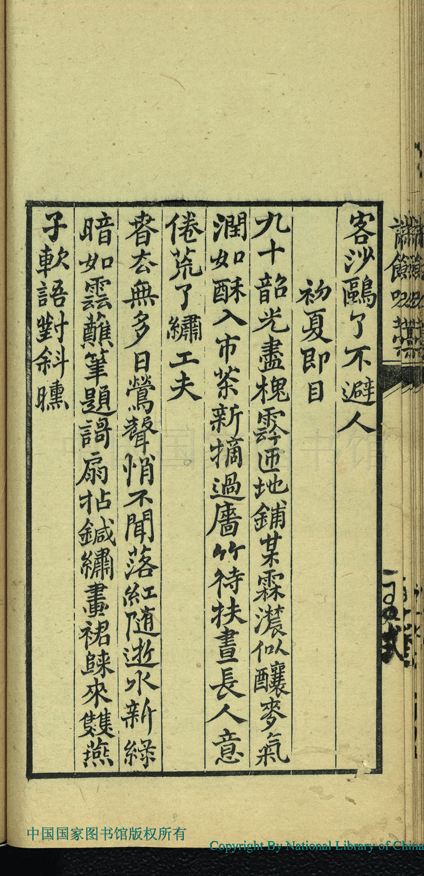 客沙鷗了不避人
初夏即目
九十韶光盡槐霒匝地鋪某霖濃似釀麥氣
潤如酥入市茶新摘過牆竹待扶晝長人意
倦荒了繡工夫
旾厺無多日鶯聲悄不聞落紅随逝水新綠
暗如雲蘸筆題謌扇拈鍼繡畫裙歸來雙燕
子軟語對斜曛
中国国家图书馆
中国国家图书馆版权所有
Copyright By National Library of China